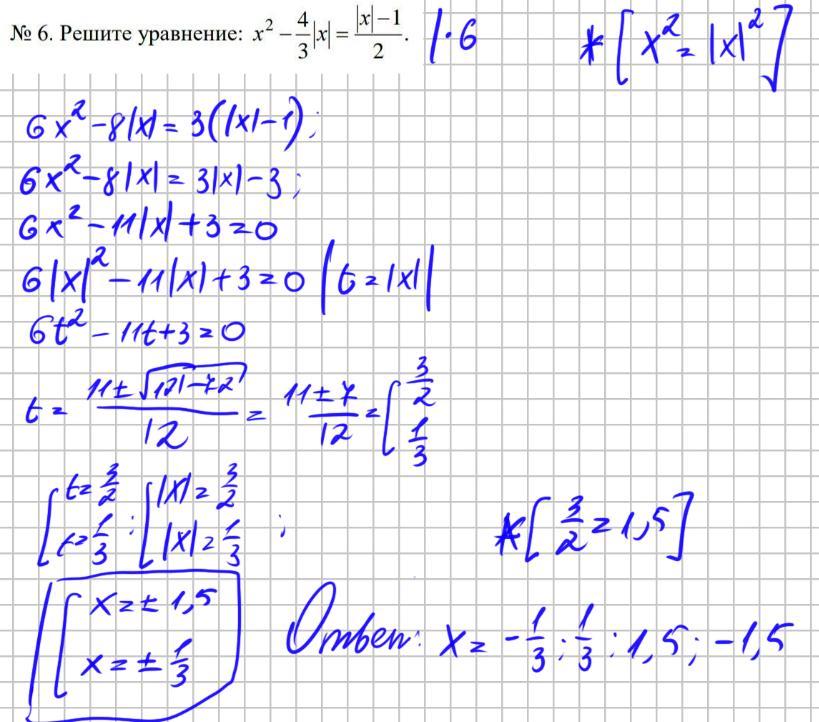 № 6. Решите уравнение: x² − 4/3|x| = (|x|−1)/2. | ·6 * [x² = |x|²]
6x² − 8|x| = 3(|x|−1);
6x² − 8|x| = 3|x| − 3;
6x² − 11|x| + 3 = 0
6|x|² − 11|x| + 3 = 0 | t = |x| |
6t² − 11t + 3 = 0
t = (11 ± √(121−72))/12 = (11 ± 7)/12 = [ 3/2 1/3
[ t = 3/2 t = 1/3 ; [ |x| = 3/2 |x| = 1/3 ; * [3/2 = 1,5]
[ x = ± 1,5
x = ± 1/3
Ответ: x = −1/3; 1/3; 1,5; −1,5